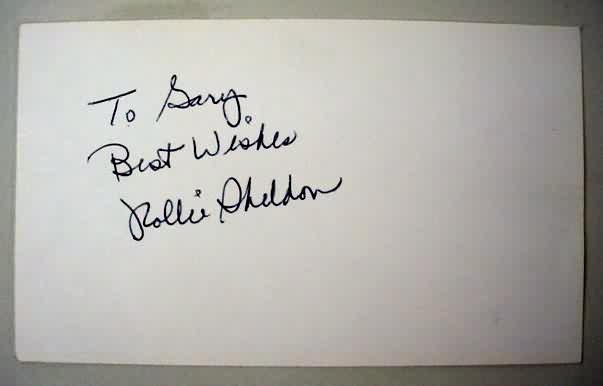 To Gary
Best Wishes
Rollie Sheldon